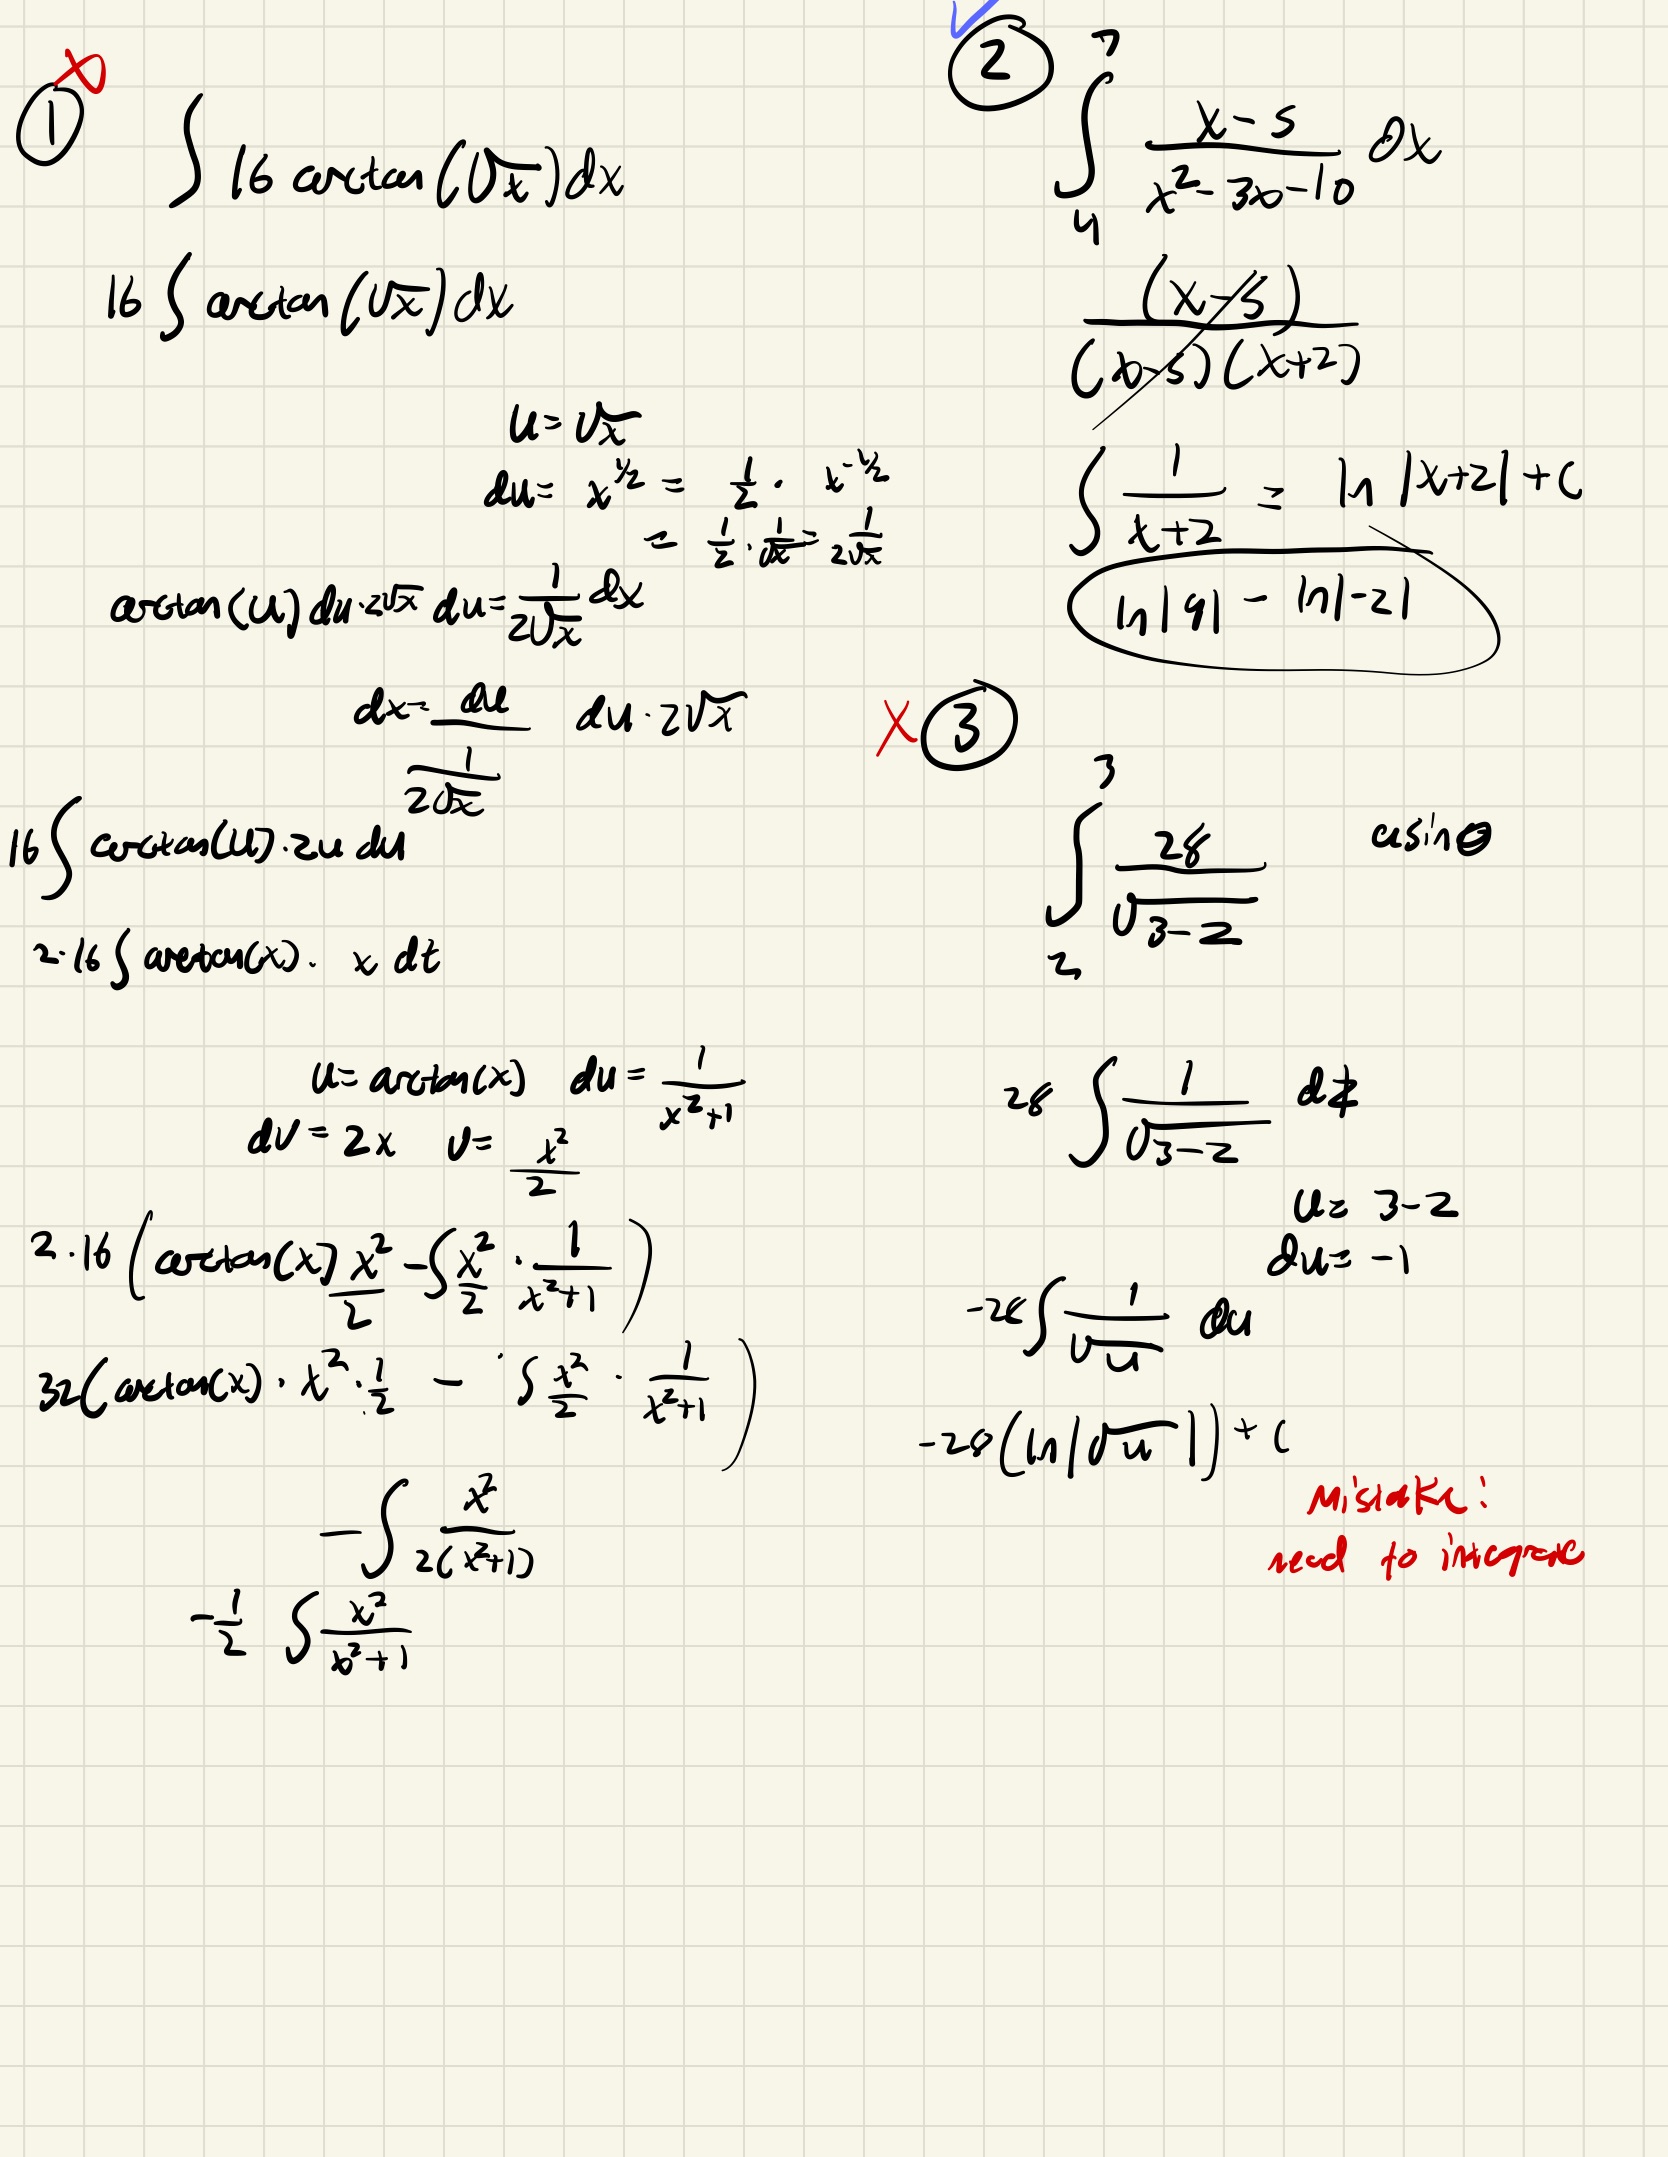 ①
∫ 16 arctan(√x)dx
16 ∫ arctan(√x)dx
u = √x
du = x^{1/2} = 1/2 · x^{-1/2}
= 1/2 · 1/√x = 1/(2√x)
arctan(u) du·2√x du = 1/(2√x) dx
dx = du/(1/(2√x)) du·2√x
16 ∫ arctan(u)·2u du
2·16 ∫ arctan(x)· x dt
u = arctan(x) du = 1/(x²+1)
dv = 2x v = x²/2
2·16 (arctan(x) x²/2 - ∫ x²/2 · 1/(x²+1))
32(arctan(x) · x² · 1/2 - ∫ x²/2 · 1/(x²+1))
-∫ x²/(2(x²+1))
-1/2 ∫ x²/(x²+1)
②
∫_4^7 (x-5)/(x²-3x-10) dx
(x-5)/((x-5)(x+2))
∫ 1/(x+2) = ln |x+2| + C
ln|9| - ln|-2|
X ③
∫_2^3 28/√(3-z) asinθ
28 ∫ 1/√(3-z) dz
u = 3-z
du = -1
-28 ∫ 1/√u du
-28(ln|√u|) + C
Mistake:
need to integrate